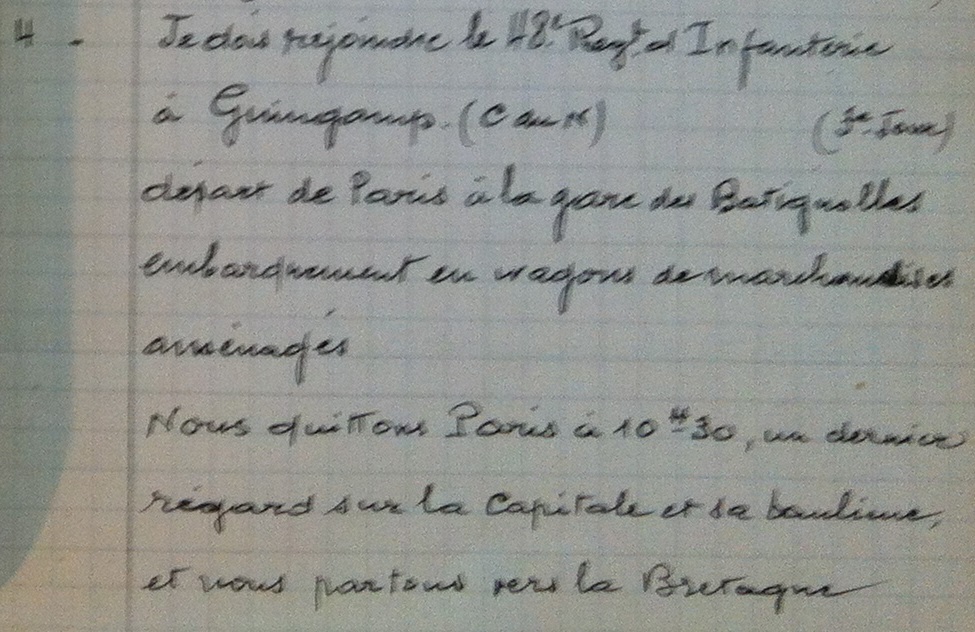 4 - Je dois rejoindre le 48e Regt d Infanterie
à Guingamp. (C du N) (3e Jour)
départ de Paris à la gare des Batignolles
embarquement en wagons de marchandises
aménagés
Nous quittons Paris à 10H30, un dernier
regard sur la Capitale et sa banlieue,
et nous partons vers la Bretagne